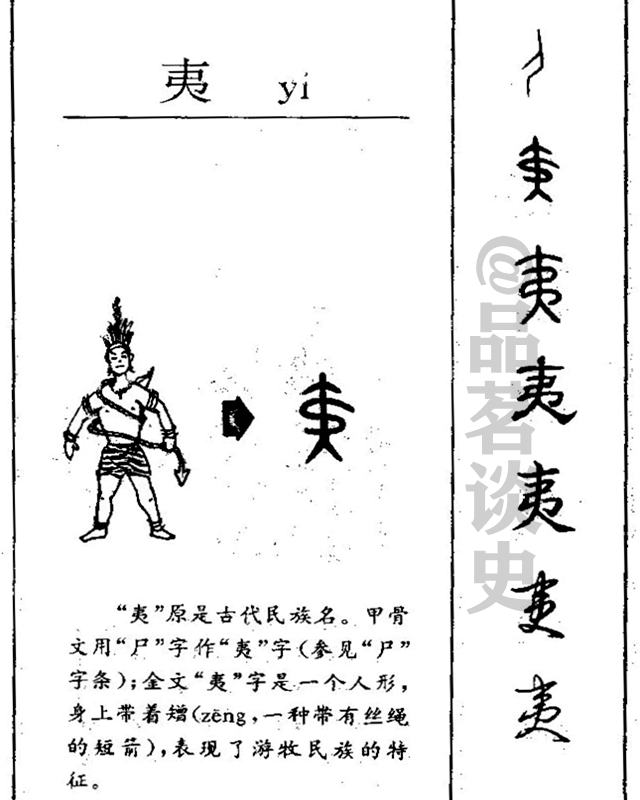 夷 yí
“夷”原是古代民族名。甲骨
文用“尸”字作“夷”字(参见“尸”
字条);金文“夷”字是一个人形,
身上带着矰(zēng,一种带有丝绳
的短箭),表现了游牧民族的特
征。
夷
夷
夷
夷
夷
@品茗谈史